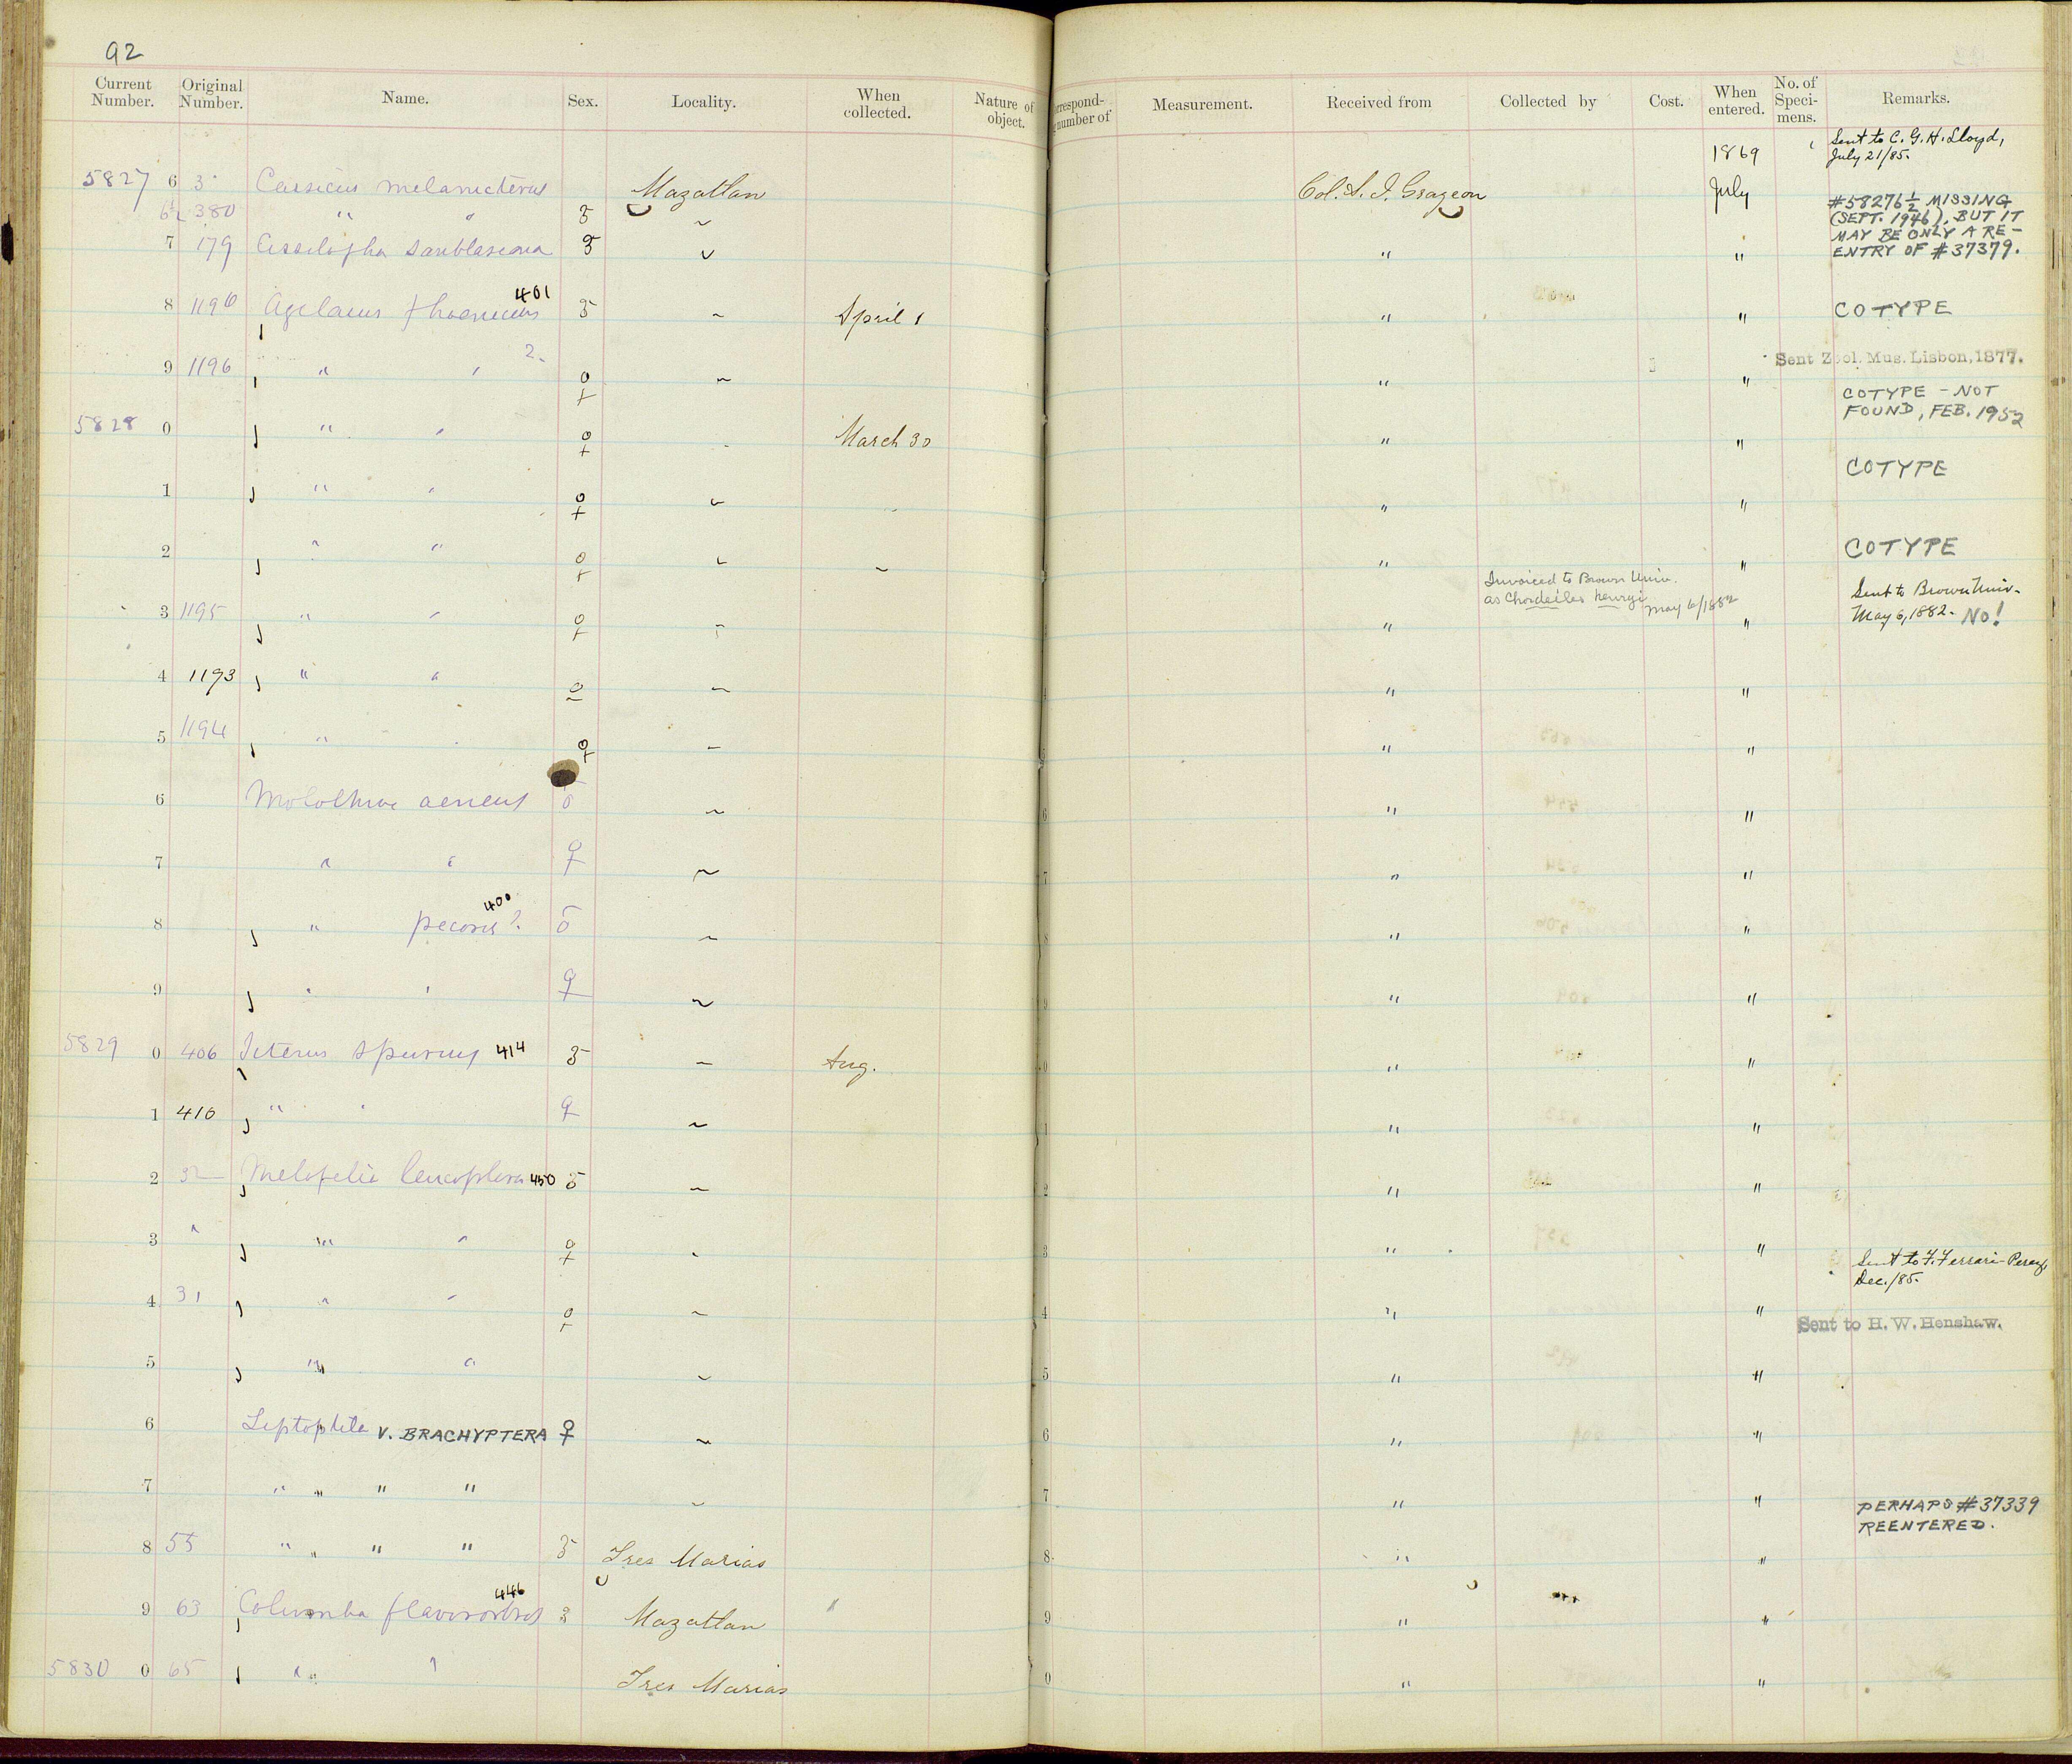 92
Current Number. Original Number. Name. Sex. Locality. When collected. Nature of object. Correspond- number of Measurement. Received from Collected by Cost. When entered. No. of Speci- mens. Remarks.
1869 Sent to C. G. H. Lloyd,
July 21/85.
5827 6 3 Cassicus melanicterus Mazatlan Col. A. J. Grayson July
6½ 380 " " ♂ #58276½ MISSING
(SEPT. 1946), BUT IT
MAY BE ONLY A RE-
ENTRY OF #37379.
7 179 Cissilopha sanblasiana ♂ " "
8 1196 Agelaeus phoeniceus 401 ♂ April 1 " " COTYPE
9 1196 " " 2. ♀ " " Sent Zool. Mus. Lisbon, 1877.
COTYPE - NOT
FOUND, FEB. 1952
5828 0 " " ♀ March 30 " "
1 " " ♀ " " COTYPE
2 " " ♀ " " COTYPE
Invoiced to Brown Univ.
as Chordeiles henryi May 6/1882
3 1195 " " ♀ " " Sent to Brown Univ.
May 6, 1882. NO!
4 1193 " " ♀ " "
5 1194 " ♀ " "
6 Molothrus aeneus ♂ " "
7 " " ♀ " "
8 " pecoris? 400 ♂ " "
9 " " ♀ " "
5829 0 406 Icterus spurius 414 ♂ Aug. " "
1 410 " " ♀ " "
2 32 Melopelia leucoptera 450 ♂ " "
3 " " " ♀ " " Sent to F. Ferrari-Perez,
Dec./85.
4 31 " " ♀ " " Sent to H. W. Henshaw.
5 " " " "
6 Leptoptila V. BRACHYPTERA ♀ " "
7 " " " " " " PERHAPS #37339
REENTERED.
8 55 " " " " ♂ Tres Marias " "
9 63 Columba flavirostris 446 ♂ Mazatlan " "
5830 0 65 " " Tres Marias " "